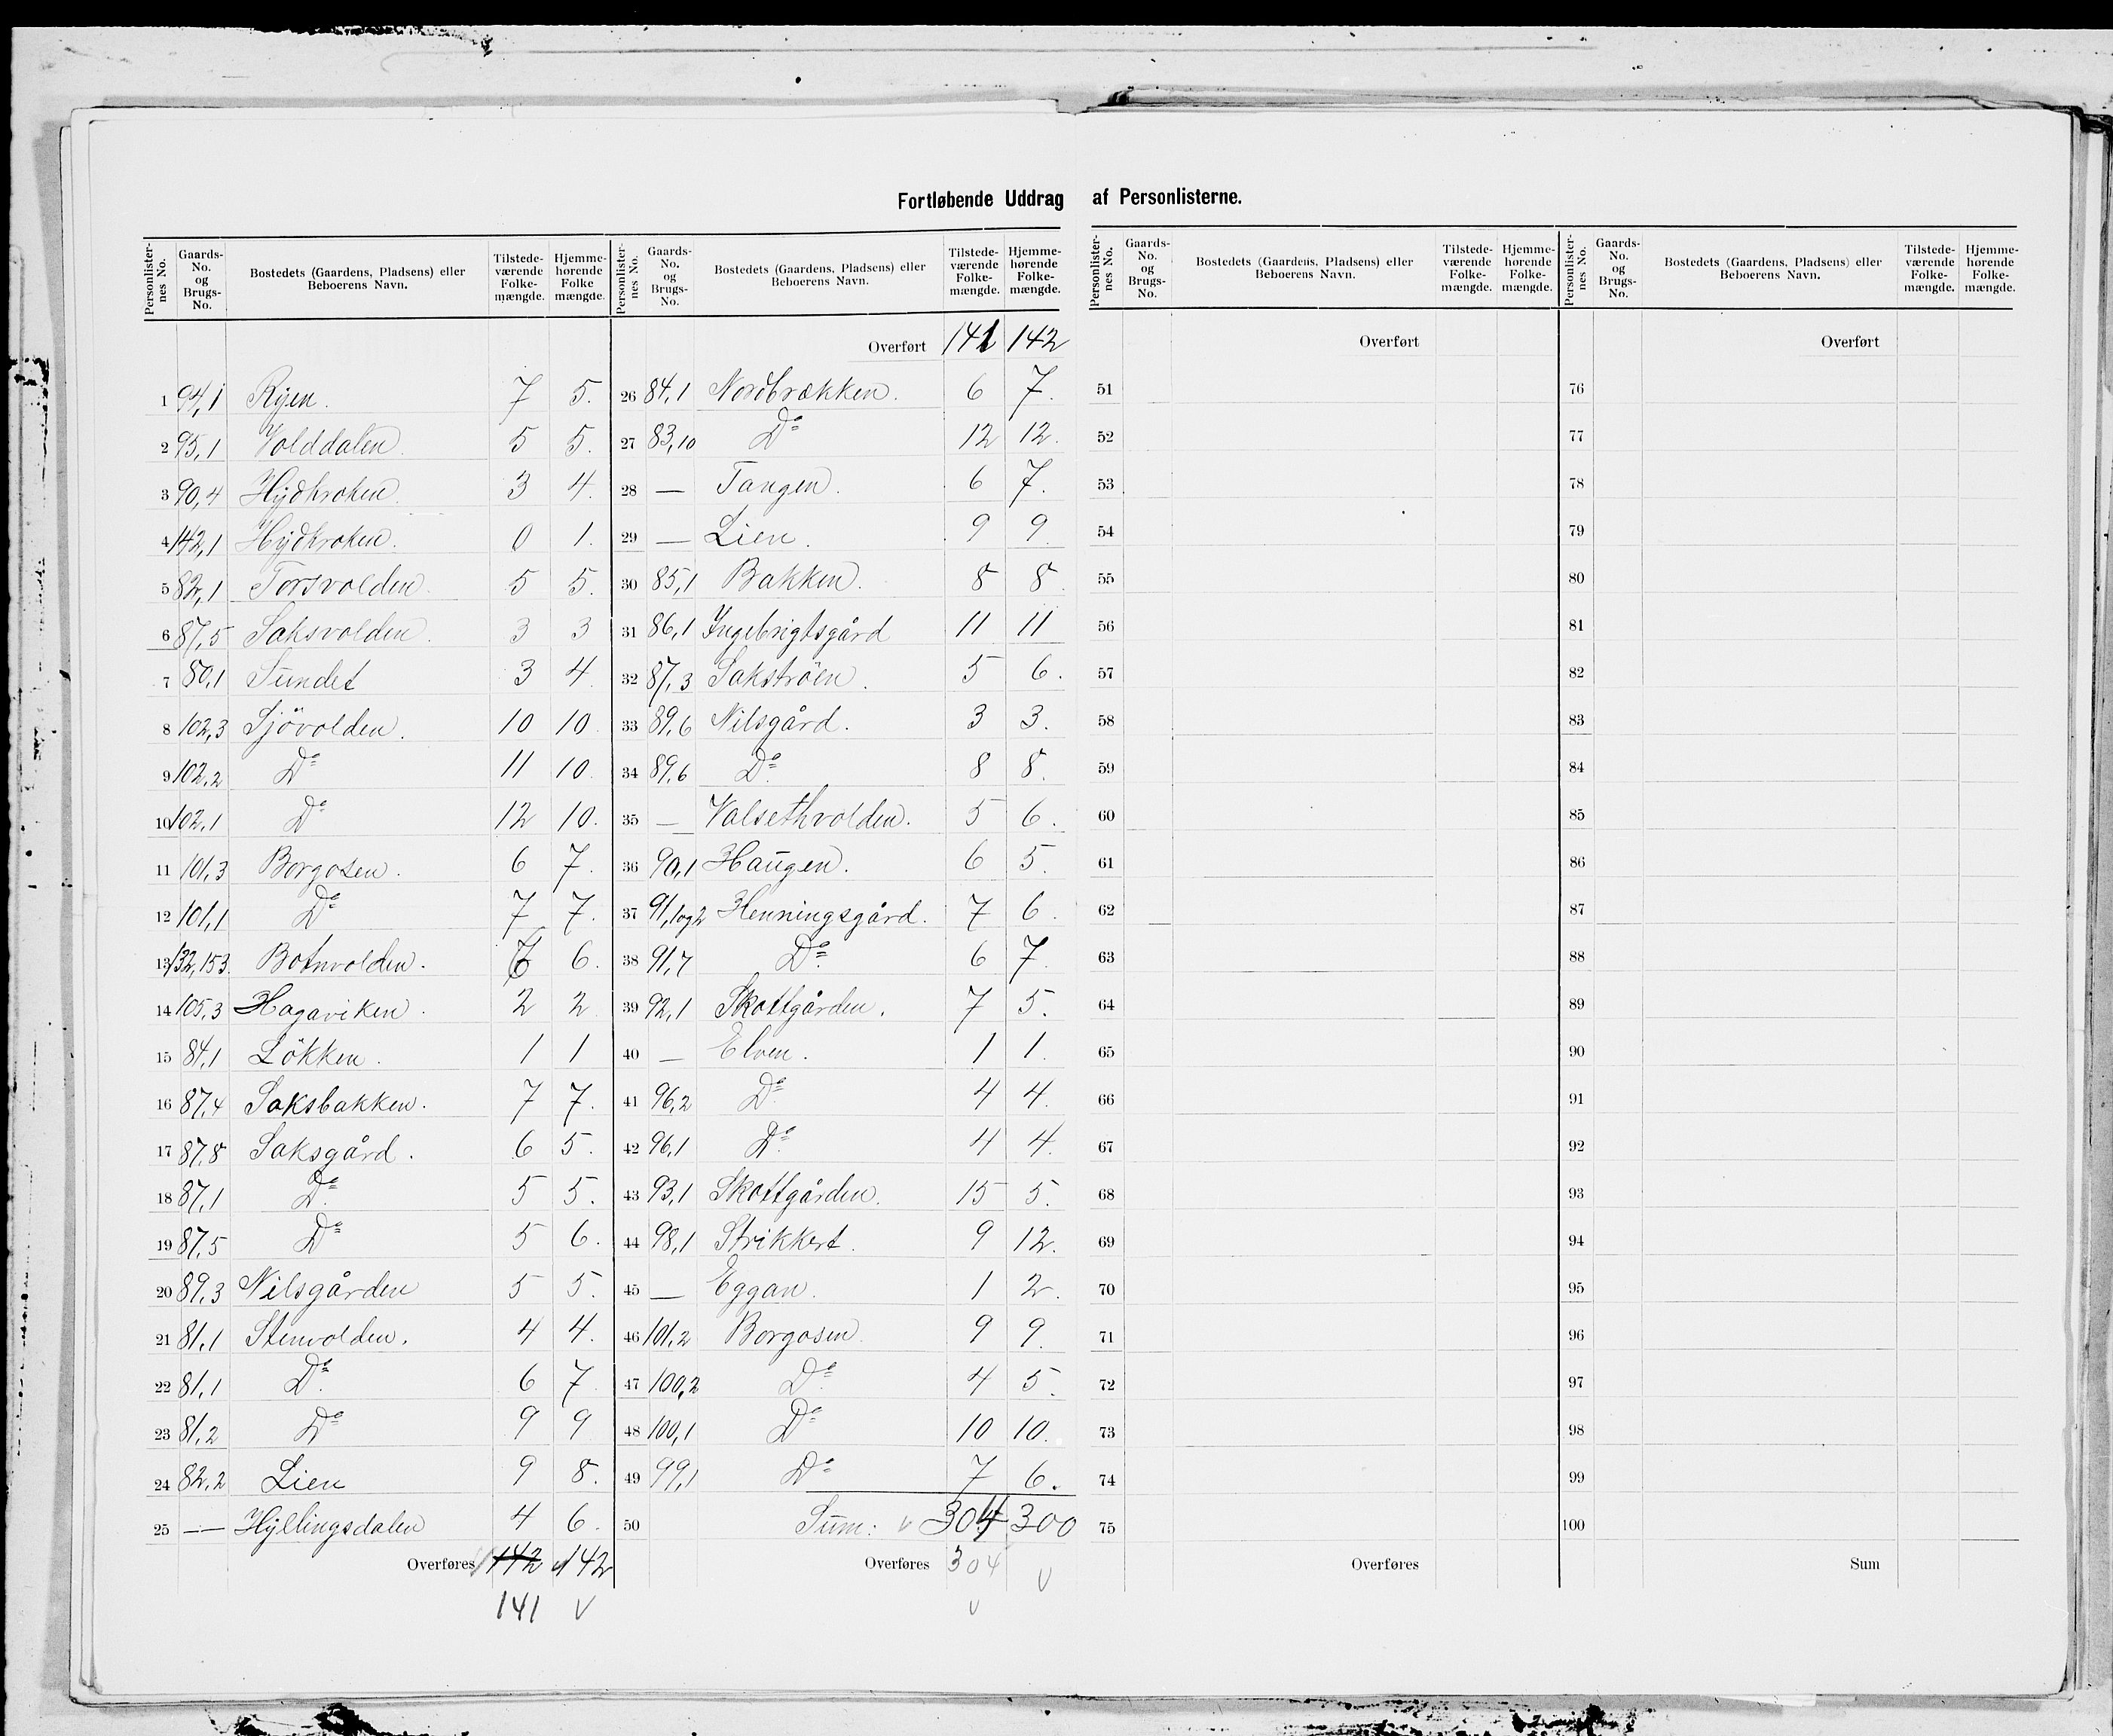 Fortløbende Uddrag af Personlisterne.
Personlister-nes No. | Gaards-No. og Brugs-No. | Bostedets (Gaardens, Pladsens) eller Beboerens Navn. | Tilstede-værende Folke-mængde. | Hjemme-hørende Folke mængde.
1 94,1 Ryen. 7 5.
2 95,1 Volddalen. 5 5.
3 90,4 Hydkroken. 3 4.
4 142,1 Hydkroken. 0 1.
5 82,1 Torsvolden. 5 5.
6 87,5 Saksvolden. 3 3
7 80,1 Sundet 3 4
8 102,3 Sjövolden. 10 10
9 102,2 Do 11 10.
10 102,1 Do 12 10.
11 101,3 Borgosen. 6 7.
12 101,1 Do 7 7.
13 132,153. Botnvolden. 6 6.
14 105,3 Hagaviken. 2 2
15 84,1 Lökken. 1 1
16 87,4 Saksbakken. 7 7.
17 87,8 Saksgård. 6 5.
18 87,1 Do 5 5.
19 87,5 Do 5 6.
20 89,3 Nilsgården 5 5.
21 81,1 Stenvolden. 4 4.
22 81,1 Do 6 7
23 81,2 Do 9 9
24 82,2 Lien 9 8.
25 — Hyllingsdalen 4 6.
Overføres 142 142
141 V
Personlister-nes No. | Gaards-No. og Brugs-No. | Bostedets (Gaardens, Pladsens) eller Beboerens Navn. | Tilstede-værende Folke-mængde. | Hjemme-hørende Folke-mængde.
Overført 141 142
26 84,1 Nordbrækken. 6 7.
27 83,10 Do 12 12.
28 — Tangen. 6 7.
29 — Lien. 9 9
30 85,1 Bakken. 8 8.
31 86,1 Ingebrigtsgård 11 11
32 87,3 Sakströen. 5 6.
33 89,6 Nilsgård. 3 3.
34 89,6 Do 8 8.
35 — Valsethvolden. 5 6.
36 90,1 Haugen. 6 5.
37 91,1og2 Henningsgård. 7 6.
38 91,7 Do 6 7
39 92,1 Skottgården. 7 5.
40 — Elven. 1 1.
41 96,2 Do 4 4.
42 96,1 Do 4 4.
43 93,1 Skottgården. 15 5.
44 98,1 Strikkert. 9 12.
45 — Eggan. 1 2.
46 101,2 Borgosen 9 9.
47 100,2 Do 4 5.
48 100,1 Do 10 10.
49 99,1 Do 7 6.
50 Sum: V 304 300
Overføres 304 V
V
Personlister-nes No. | Gaards-No. og Brugs-No. | Bostedets (Gaardens, Pladsens) eller Beboerens Navn. | Tilstede-værende Folke-mængde. | Hjemme-hørende Folke-mængde.
Overført
51
52
53
54
55
56
57
58
59
60
61
62
63
64
65
66
67
68
69
70
71
72
73
74
75
Overføres
Personlister-nes No. | Gaards-No. og Brugs-No. | Bostedets (Gaardens, Pladsens) eller Beboerens Navn. | Tilstede-værende Folke-mængde. | Hjemme-hørende Folke-mængde.
Overført
76
77
78
79
80
81
82
83
84
85
86
87
88
89
90
91
92
93
94
95
96
97
98
99
100
Sum